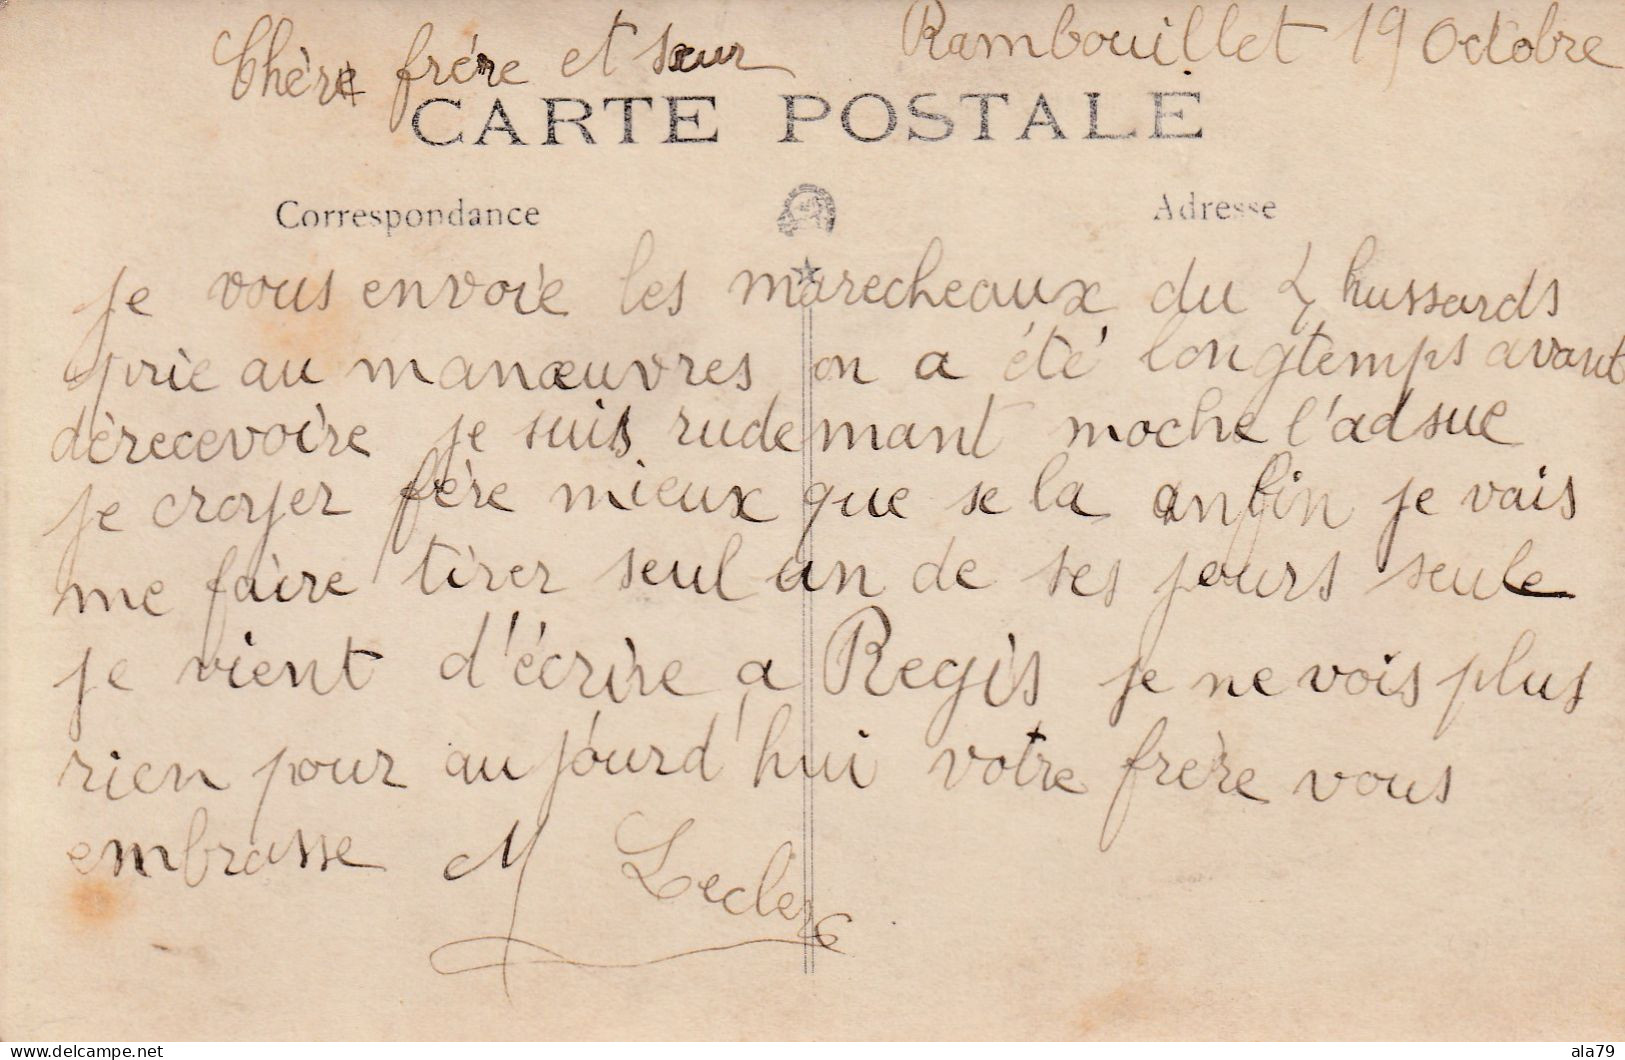 Rambouillet 19 Octobre
Chère frére et sœur
CARTE POSTALE
Correspondance
Adresse
je vous envoie les marecheaux du 4 hussards
prie au manœuvres on a été longtemps avant
dérecevoire je suis rudemant moche l'adsue
je croyer fère mieux que se la anfin je vais
me faire tirer seul un de ses jours seule
je vient d'écrire a Regis je ne vois plus
rien pour aujourd'hui votre frère vous
embrasse M Leclerc
delcampe.net
ala79